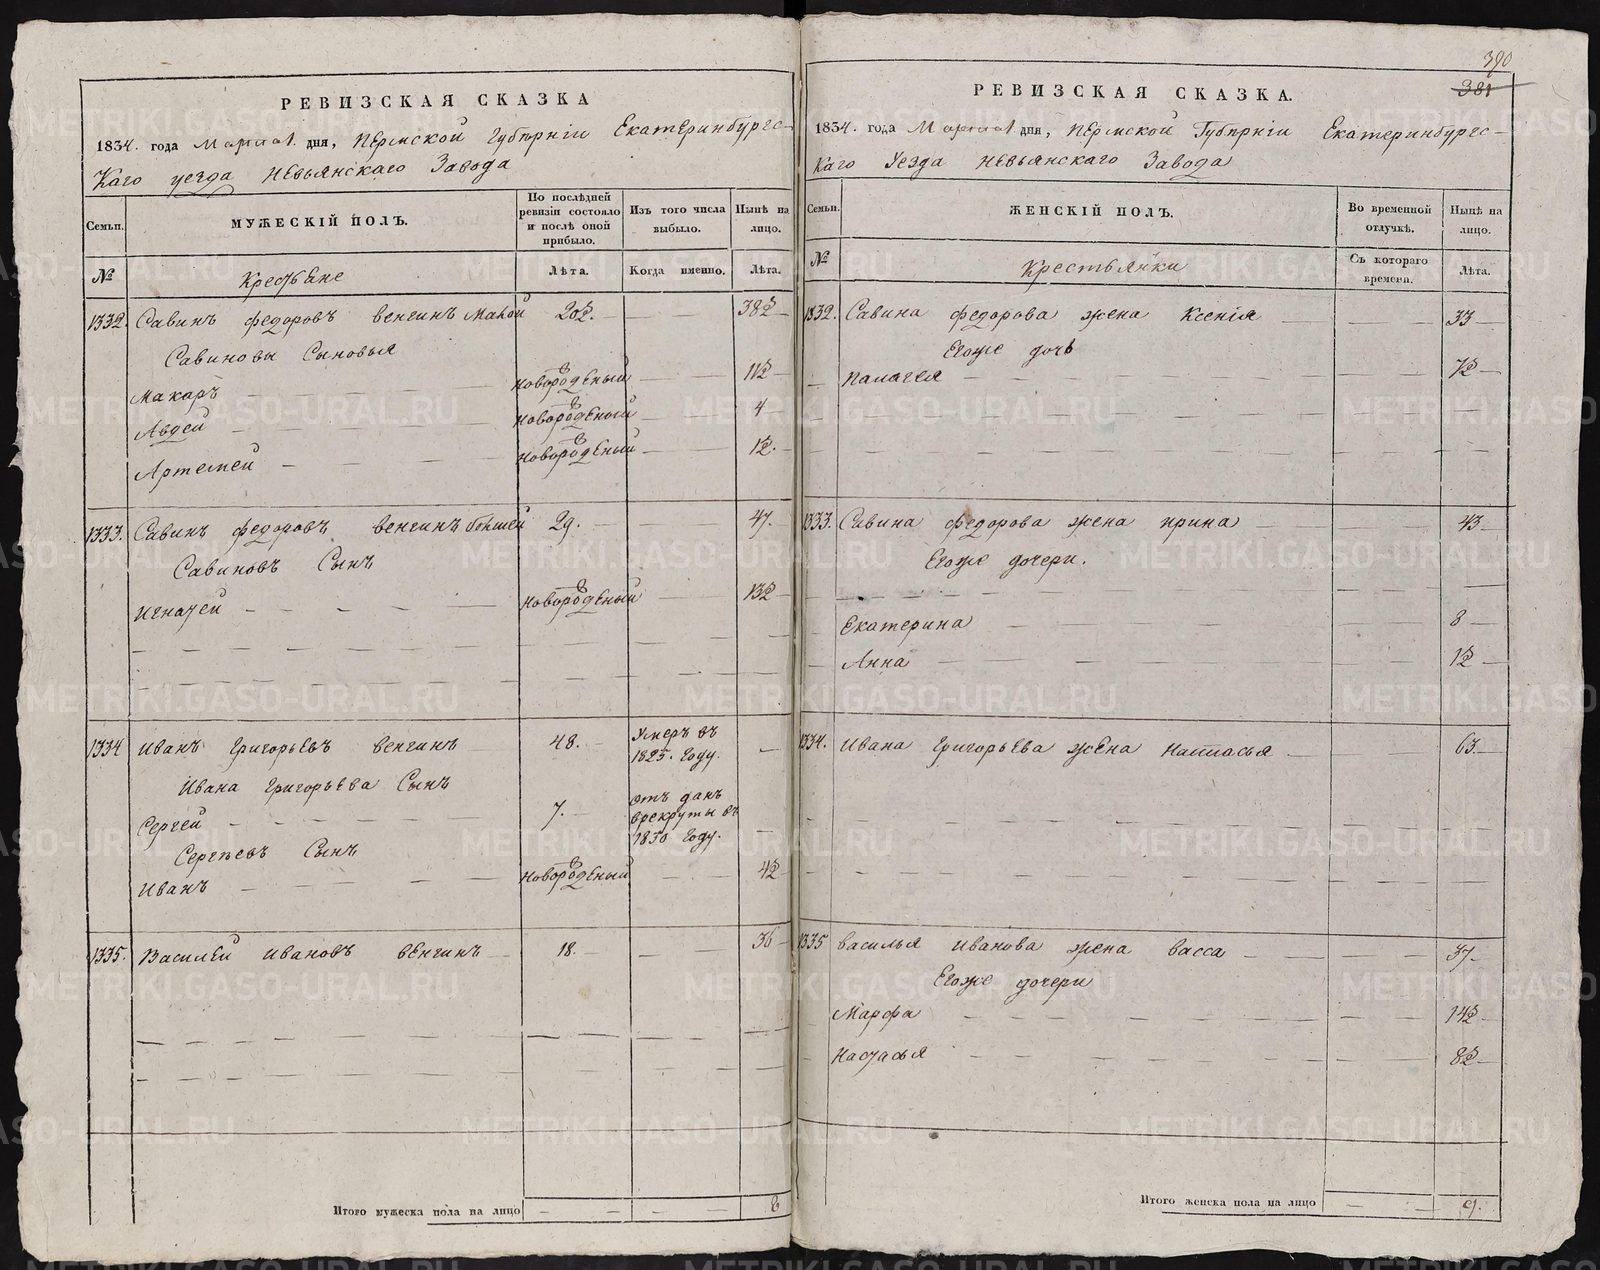 РЕВИЗСКАЯ СКАЗКА
1834. года Марта 1. дня, Пермской Губерніи Екатеринбургс-
каго уезда Невьянскаго Завода
Семьи.
МУЖЕСКІЙ ПОЛЪ.
По послѣдней ревизіи состояло и послѣ оной прибыло.
Изъ того числа выбыло.
Нынѣ на лицо.
№
Крестьяне
Лѣта.
Когда именно.
Лѣта.
1332. Савинъ Федоровъ Венгинъ
Савиновы Сыновья
Макаръ Новорожденый
Авдей Новорожденый 4
Артемей Новорожденый
1333. Савинъ Федоровъ Венгинъ 29. 47.
Савиновъ Сынъ
Игнатей Новорожденый
1334 Иванъ Григорьевъ Венгинъ 48. Умеръ въ 1825. Году.
Ивана Григорьева Сынъ
Сергей 7. отъ данъ врекруты въ 1830 Году.
Сергѣевъ Сынъ
Иванъ Новорожденый
1335. Василей Ивановъ Венгинъ 18. 36
Итого мужеска пола на лицо 8
390
381
РЕВИЗСКАЯ СКАЗКА.
1834. года Марта 1. дня, Пермской Губерніи Екатеринбургс-
каго Уезда Невьянскаго Завода
Семьи.
ЖЕНСКІЙ ПОЛЪ.
Во временной отлучкѣ.
Нынѣ на лицо.
№
Крестьянки
Съ котораго времени.
Лѣта.
1332. Савина Федорова жена Ксенія 33
Егоже дочь
Палагея
1333. Савина Федорова жена Ирина 43
Егоже дочери.
Екатерина 8
Анна
1334. Ивана Григорьева жена Настасья 63
1335 Василья Иванова жена Васса 37
Егоже дочери
Марфа
Настасья
Итого женска пола на лицо 9.
METRIKI.GASO-URAL.RU